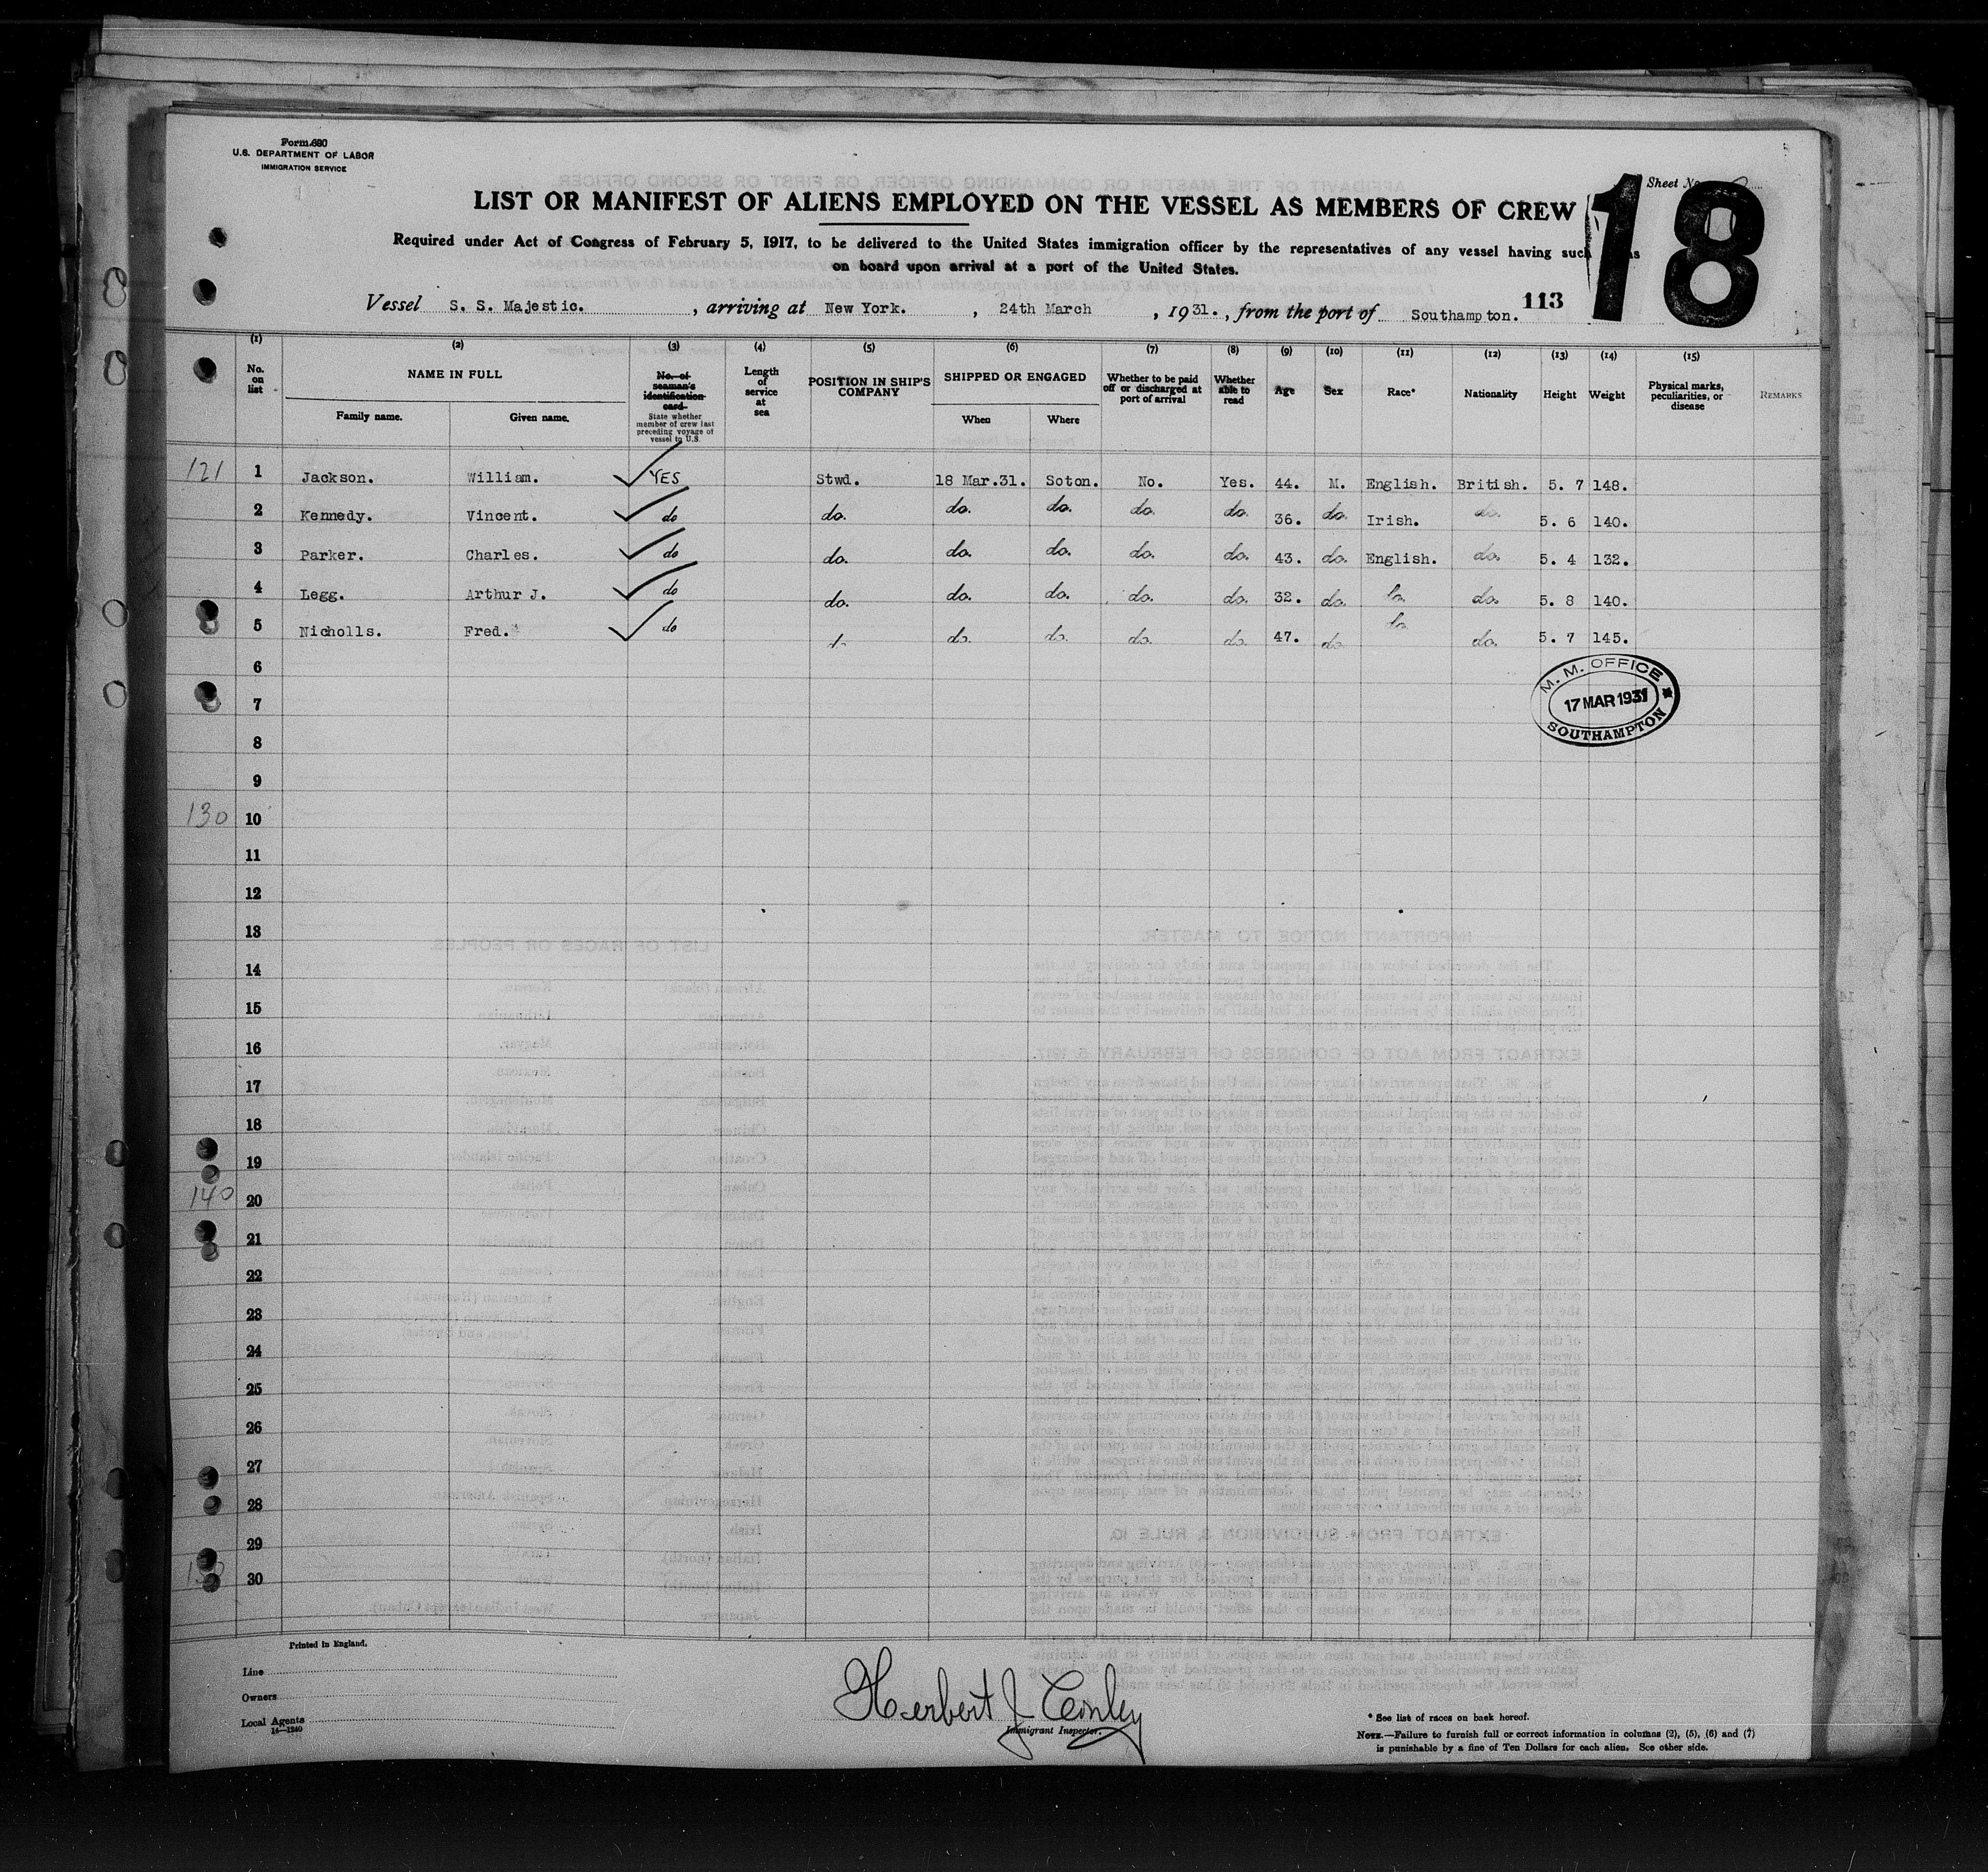 Form 680
U.S. DEPARTMENT OF LABOR
IMMIGRATION SERVICE
Sheet No.
18
LIST OR MANIFEST OF ALIENS EMPLOYED ON THE VESSEL AS MEMBERS OF CREW
Required under Act of Congress of February 5, 1917, to be delivered to the United States immigration officer by the representatives of any vessel having such
on board upon arrival at a port of the United States.
113
Vessel S. S. Majestic. , arriving at New York. , 24th March , 1931. , from the port of Southampton.
(1) (2) (3) (4) (5) (6) (7) (8) (9) (10) (11) (12) (13) (14) (15)
No. on list NAME IN FULL Family name. Given name. No. of seaman's identification card State whether member of crew last preceding voyage of vessel to U.S. Length of service at sea POSITION IN SHIP'S COMPANY SHIPPED OR ENGAGED When Where Whether to be paid off or discharged at port of arrival Whether able to read Age Sex Race* Nationality Height Weight Physical marks, peculiarities, or disease REMARKS
121 1 Jackson. William. YES Stwd. 18 Mar.31. Soton. No. Yes. 44. M. English. British. 5. 7 148.
2 Kennedy. Vincent. do do. do. do. do. do. 36. do. Irish. do. 5. 6 140.
3 Parker. Charles. do do. do. do. do. do. 43. do. English. do. 5. 4 132.
4 Legg. Arthur J. do do. do. do. do. do. 32. do. do. do. 5. 8 140.
5 Nicholls. Fred. do do. do. do. do. do. 47. do. do. do. 5. 7 145.
6
M. M. OFFICE
17 MAR 1931
SOUTHAMPTON
7
8
9
130 10
11
12
13
14
15
16
17
18
19
140 20
21
22
23
24
25
26
27
28
29
150 30
Printed in England.
Line
Owners
Local Agents
14—1240
Herbert J Conley
Immigrant Inspector.
* See list of races on back hereof.
NOTE.—Failure to furnish full or correct information in columns (2), (5), (6) and (7)
is punishable by a fine of Ten Dollars for each alien. See other side.